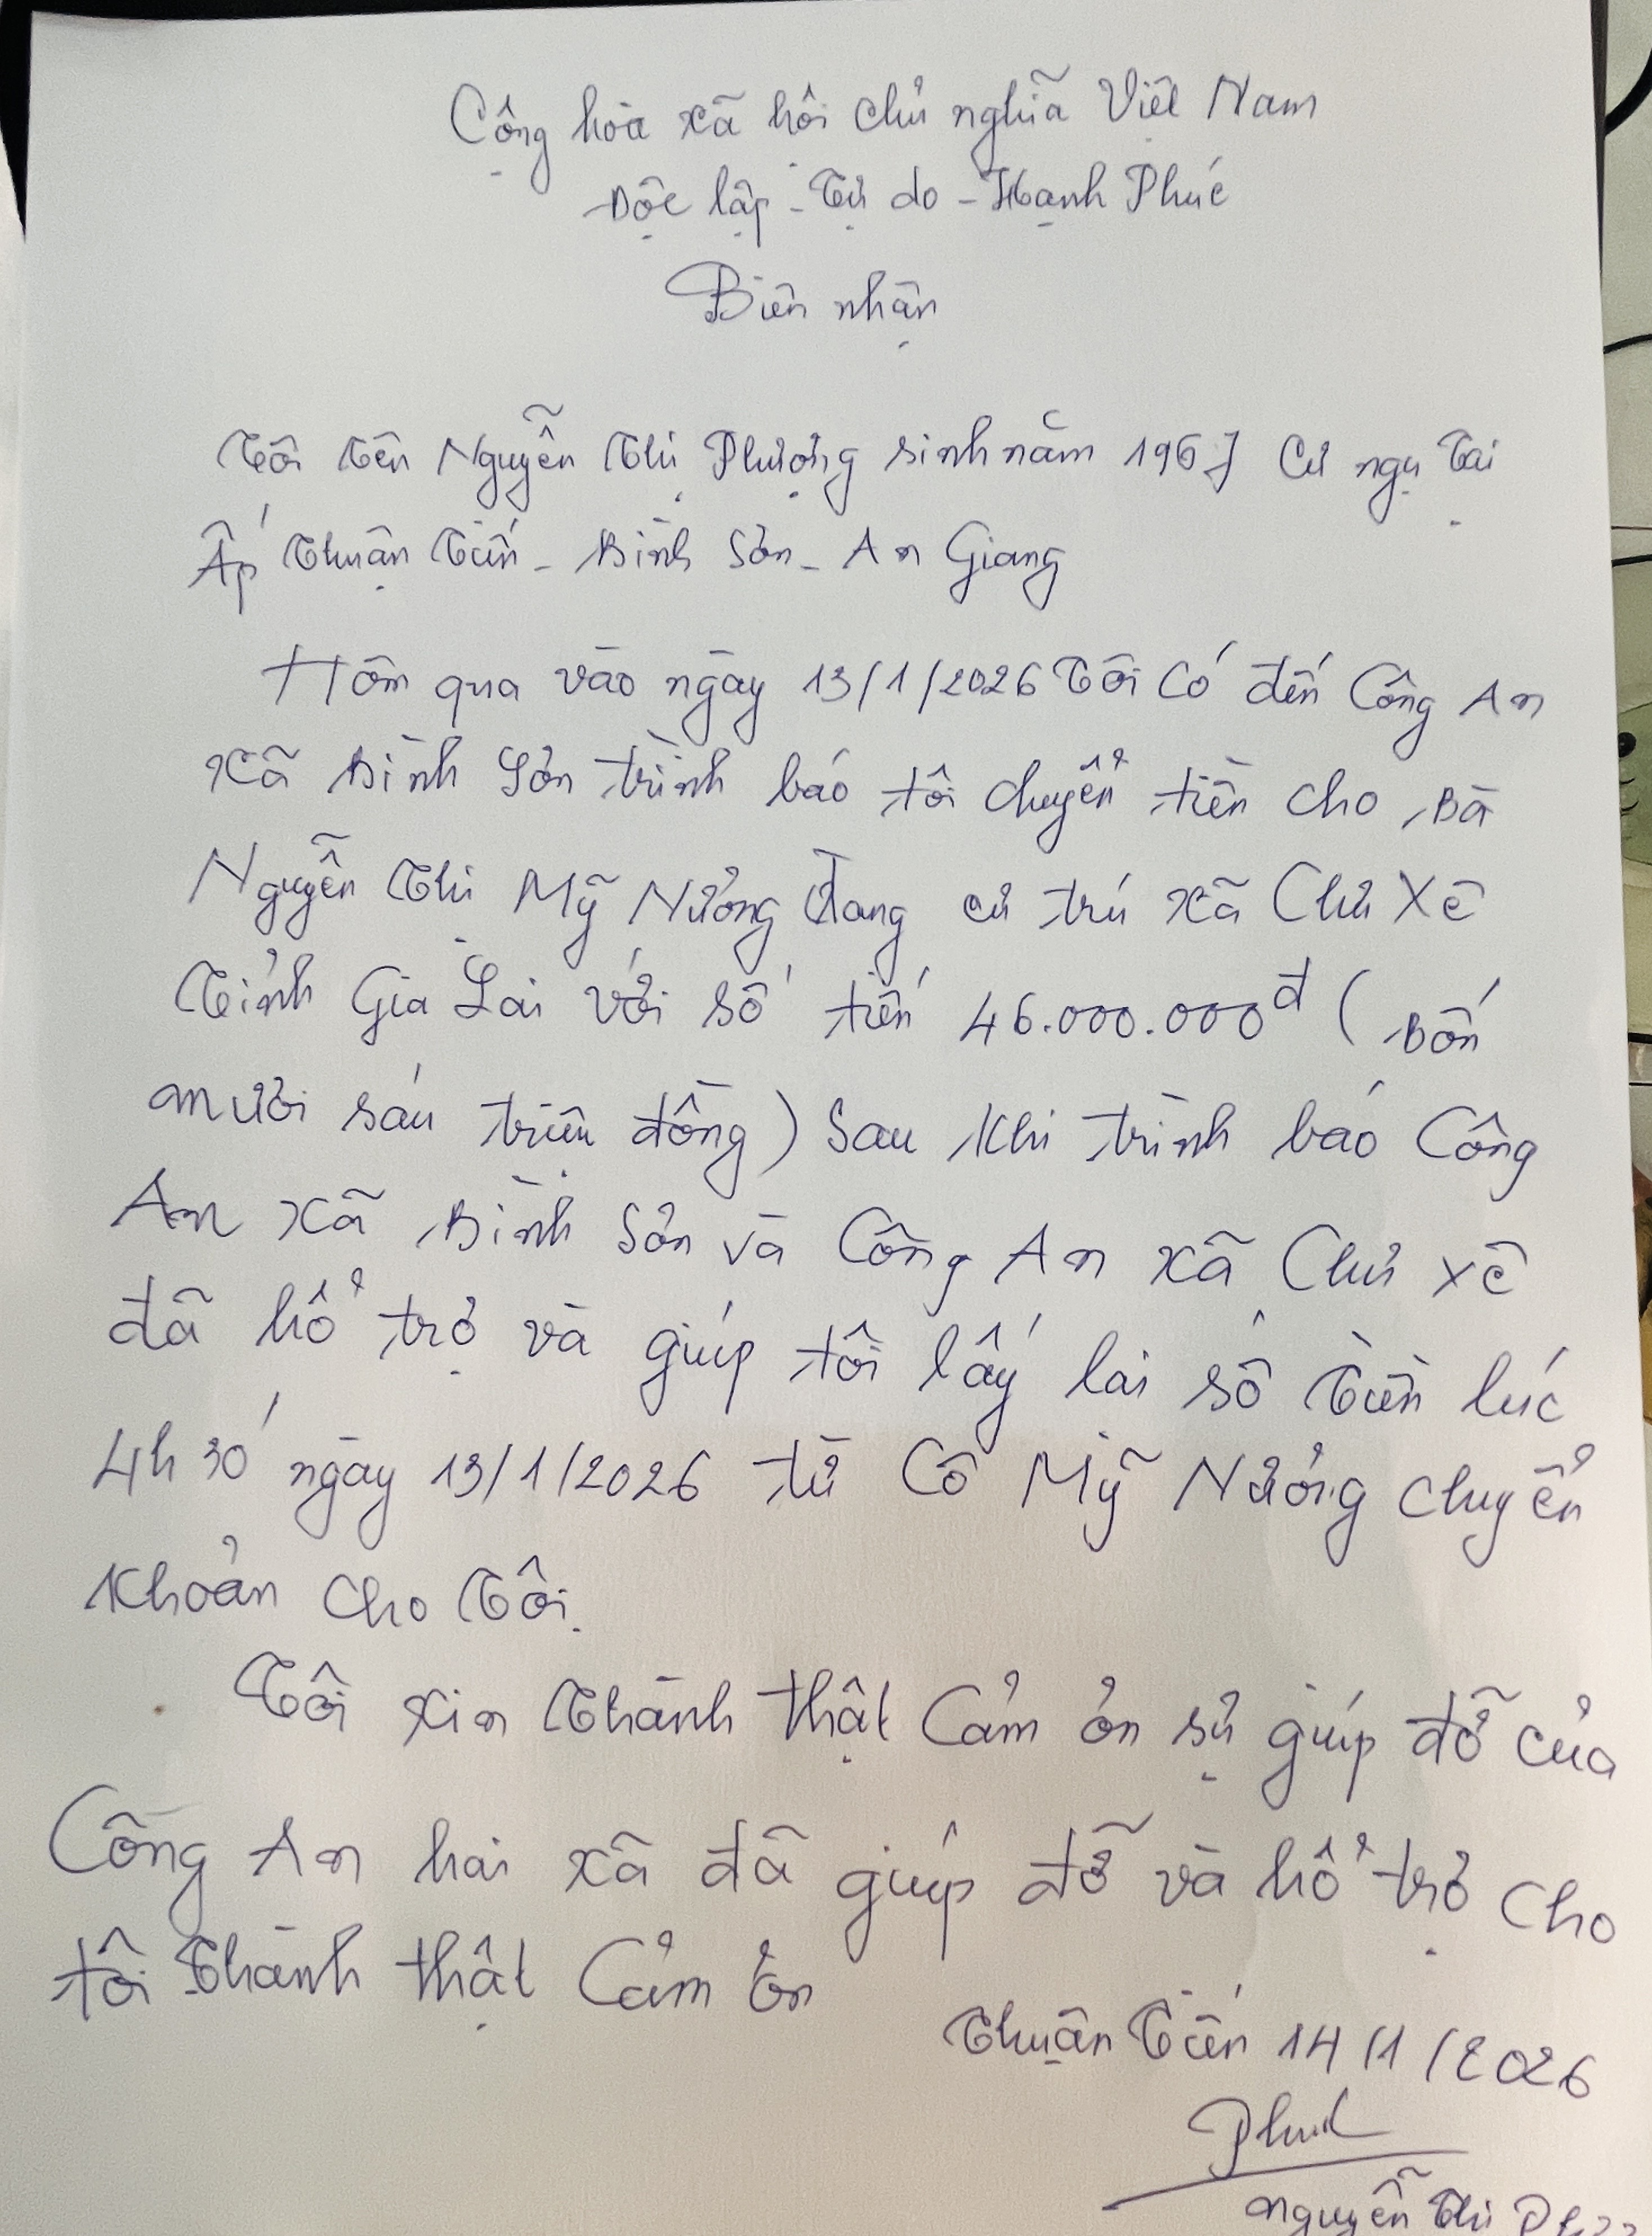 Cộng hòa xã hội chủ nghĩa Việt Nam
Độc lập - Tự do - Hạnh Phúc
Biên nhận
Tôi tên Nguyễn Thị Phượng sinh năm 1967 cư ngụ tại
Ấp Thuận Tiến - Bình Sơn - An Giang
Hôm qua vào ngày 13/1/2026 Tôi có đến Công An
xã Bình Sơn trình báo tôi chuyển tiền cho Bà
Nguyễn Thị Mỹ Nương Đang cư trú xã Chư Xê
Tỉnh Gia Lai với số tiền 46.000.000đ (Bốn
mươi sáu triệu đồng) Sau khi trình báo Công
An xã Bình Sơn và Công An xã Chư Xê
đã hổ trợ và giúp tôi lấy lại số tiền lúc
4h30' ngày 13/1/2026 từ Cô Mỹ Nương chuyển
khoản cho Tôi.
Tôi xin Thành thật Cảm ơn sự giúp đỡ của
Công An hai xã đã giúp đỡ và hổ trợ cho
tôi Thành thật Cảm ơn
Thuận Tiến 14/1/2026
Nguyễn Thị